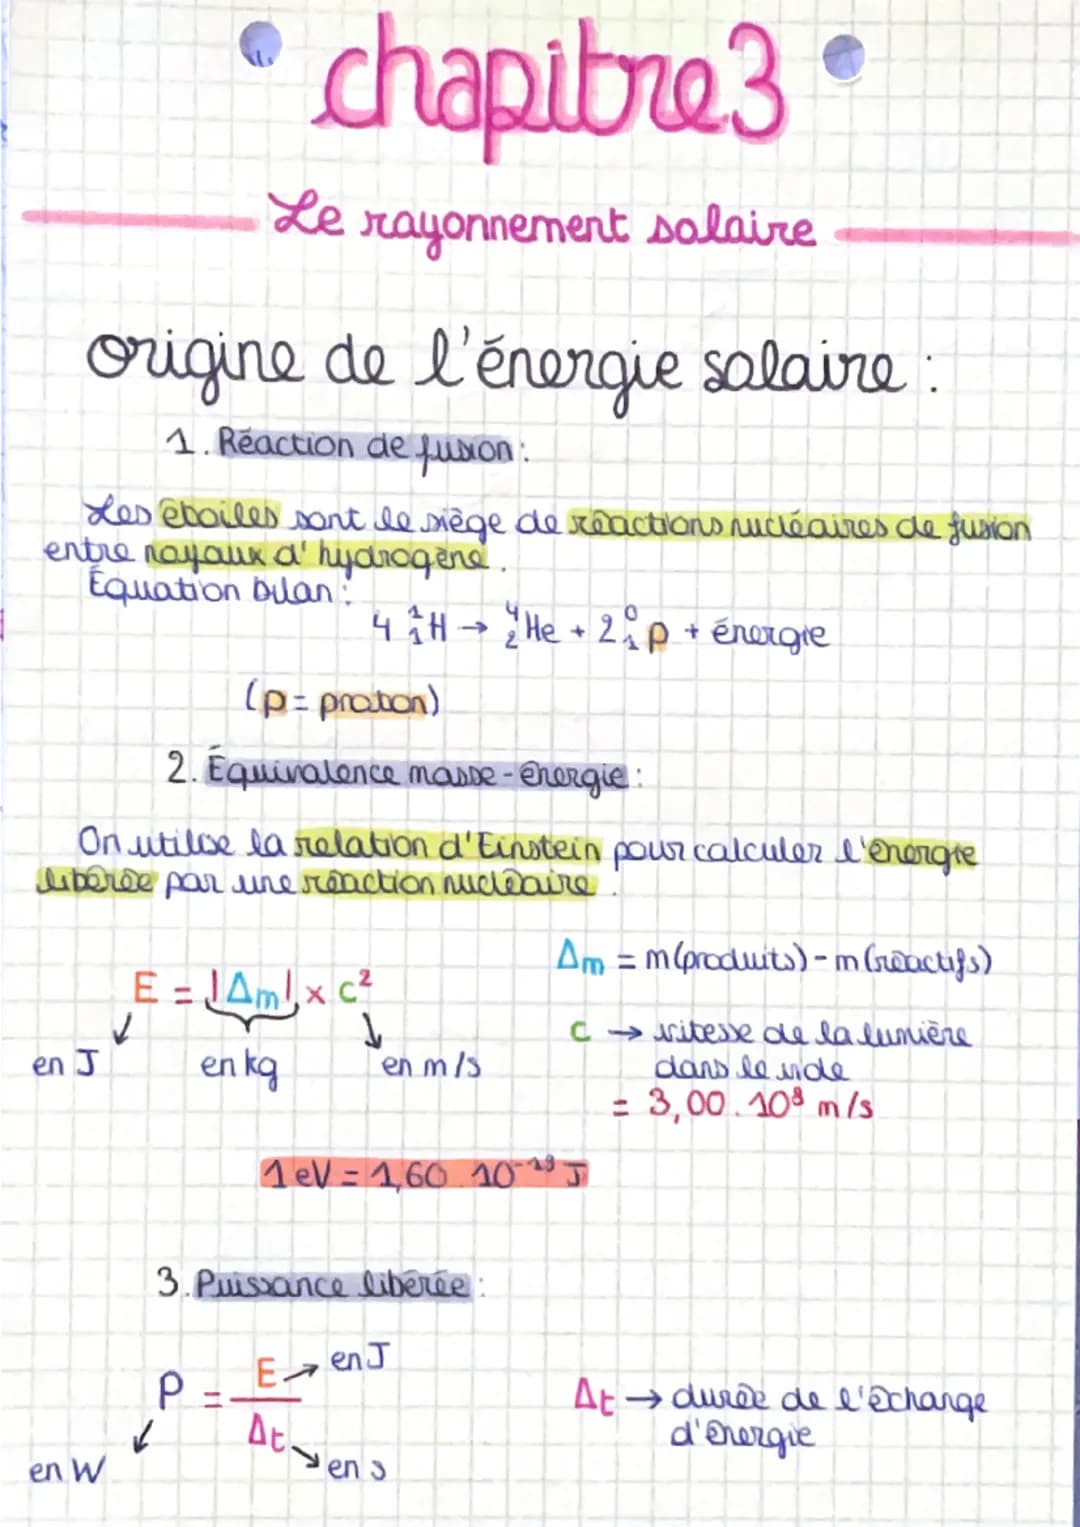 chapitre 3
Le rayonnement solaire
origine de l'énergie solaire :
1. Réaction de fusion :
Les étoiles sont le siège de réactions nucléaires de fusion
entre noyaux d'hydrogène.
Équation bilan :
4 ¹₁H → ⁴₂He + 2 ⁰₁p + énergie
(p = proton)
2. Équivalence masse-énergie :
On utilise la relation d'Einstein pour calculer l'énergie
libérée par une réaction nucléaire.
Δm = m(produits) - m(réactifs)
E = |Δm| × c²
c → vitesse de la lumière
en J en kg en m/s
dans le vide
= 3,00.10⁸ m/s
1 eV = 1,60.10⁻¹⁹ J
3. Puissance libérée :
P = E / Δt
en J
Δt → durée de l'échange
d'énergie
en W
en s